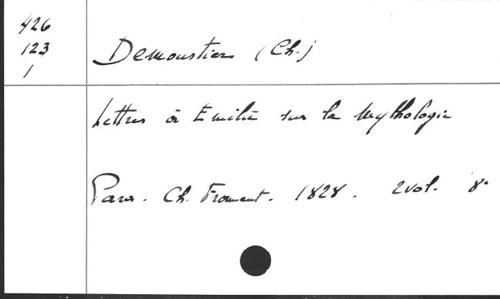 426
123
1
Demoustier (Ch.)
Lettres à Emilie sur la Mythologie
Paris. Ch. Froment. 1828. 2 vol. 8°